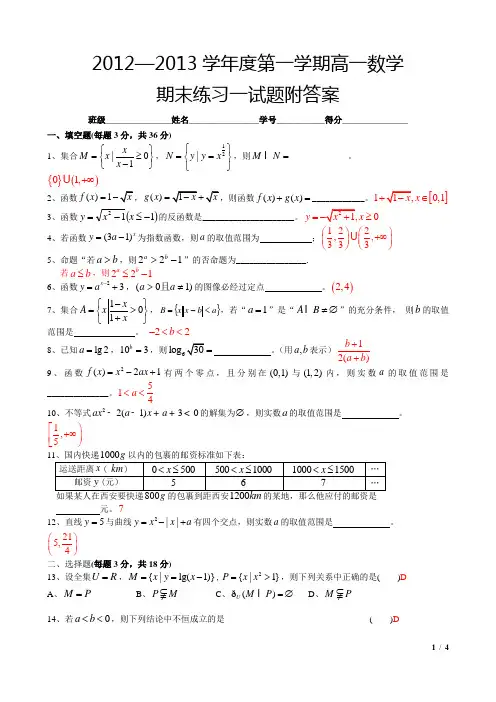 2012—2013 学年度第一学期高一数学
期末练习一试题附答案
班级________________姓名________________学号_________得分________________
一、填空题(每题 3 分，共 36 分)
1、集合 M = {x | x/(x-1) ≥ 0}，N = {y | y = x^(1/2)}，则 M I N = ____________。
{0}U(1,+∞)
2、函数 f(x) = 1-√x，g(x) = √(1-x)+√x，则函数 f(x)+g(x) = ____________。1+√(1-x), x∈[0,1]
3、函数 y = √(x²-1) (x≤-1) 的反函数是______________________。y = -√(x²+1), x≥0
4、若函数 y = (3a-1)^x 为指数函数，则 a 的取值范围为____________；(1/3, 2/3)U(2/3, +∞)
5、命题“若 a > b，则 2^a > 2^b -1”的否命题为________________.
若 a ≤ b，则 2^a ≤ 2^b -1
6、函数 y = a^(x-2) + 3, (a > 0且a ≠ 1) 的图像必经过点____________。(2,4)
7、集合 A = {x | (1-x)/(1+x) > 0}，B = {x | |x-b| < a}，若“a = 1”是“A I B ≠ ∅”的充分条件， 则 b 的取值
范围是____________。 -2 < b < 2
8、已知 a = lg 2，10^b = 3，则 log₆√30 = ____________。（用 a,b 表示）(b+1)/(2(a+b))
9、函数 f(x) = x² - 2ax + 1 有两个零点，且分别在 (0,1) 与 (1,2) 内，则实数 a 的取值范围是
______________。1 < a < 5/4
10、不等式 ax² - 2(a-1)x + a + 3 < 0 的解集为∅，则实数 a 的取值范围是____________。
[1/5, +∞)
11、国内快递 1000g 以内的包裹的邮资标准如下表：
运送距离 x（km） 0 < x ≤ 500 500 < x ≤ 1000 1000 < x ≤ 1500 …
邮资 y (元) 5 6 7 …
如果某人在西安要快递 800g 的包裹到距西安 1200km 的某地，那么他应付的邮资是
____________元。7
12、直线 y = 5 与曲线 y = x² - |x| + a 有四个交点，则实数 a 的取值范围是____________。
(5, 21/4)
二、选择题(每题 3 分，共 18 分)
13、设全集 U = R，M = {x | y = lg(x-1)}, P = {x | x² > 1}，则下列关系中正确的是( )D
A、M = P B、P ⫋ M C、∁_U(M I P) = ∅ D、M ⫋ P
14、若 a < b < 0，则下列结论中不恒成立的是 ( )D
1 / 4